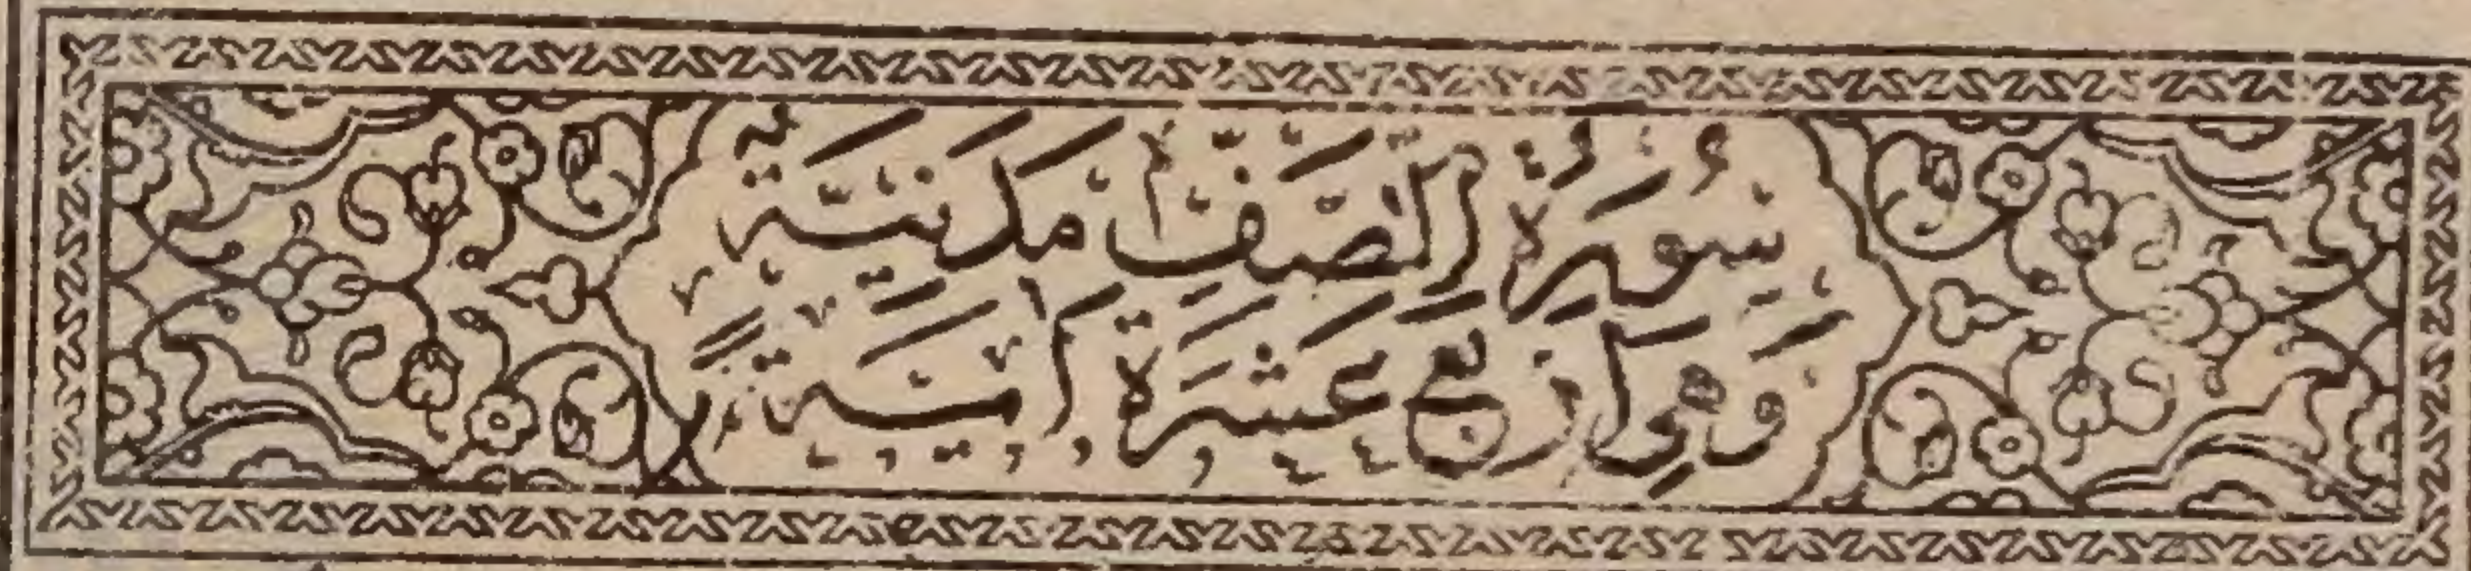 سُورَةُ الصَّفِّ مَدَنِيَّةٌ
وَهِوَ اَرْبَعَ عَشَرَةَ اٰيَةً